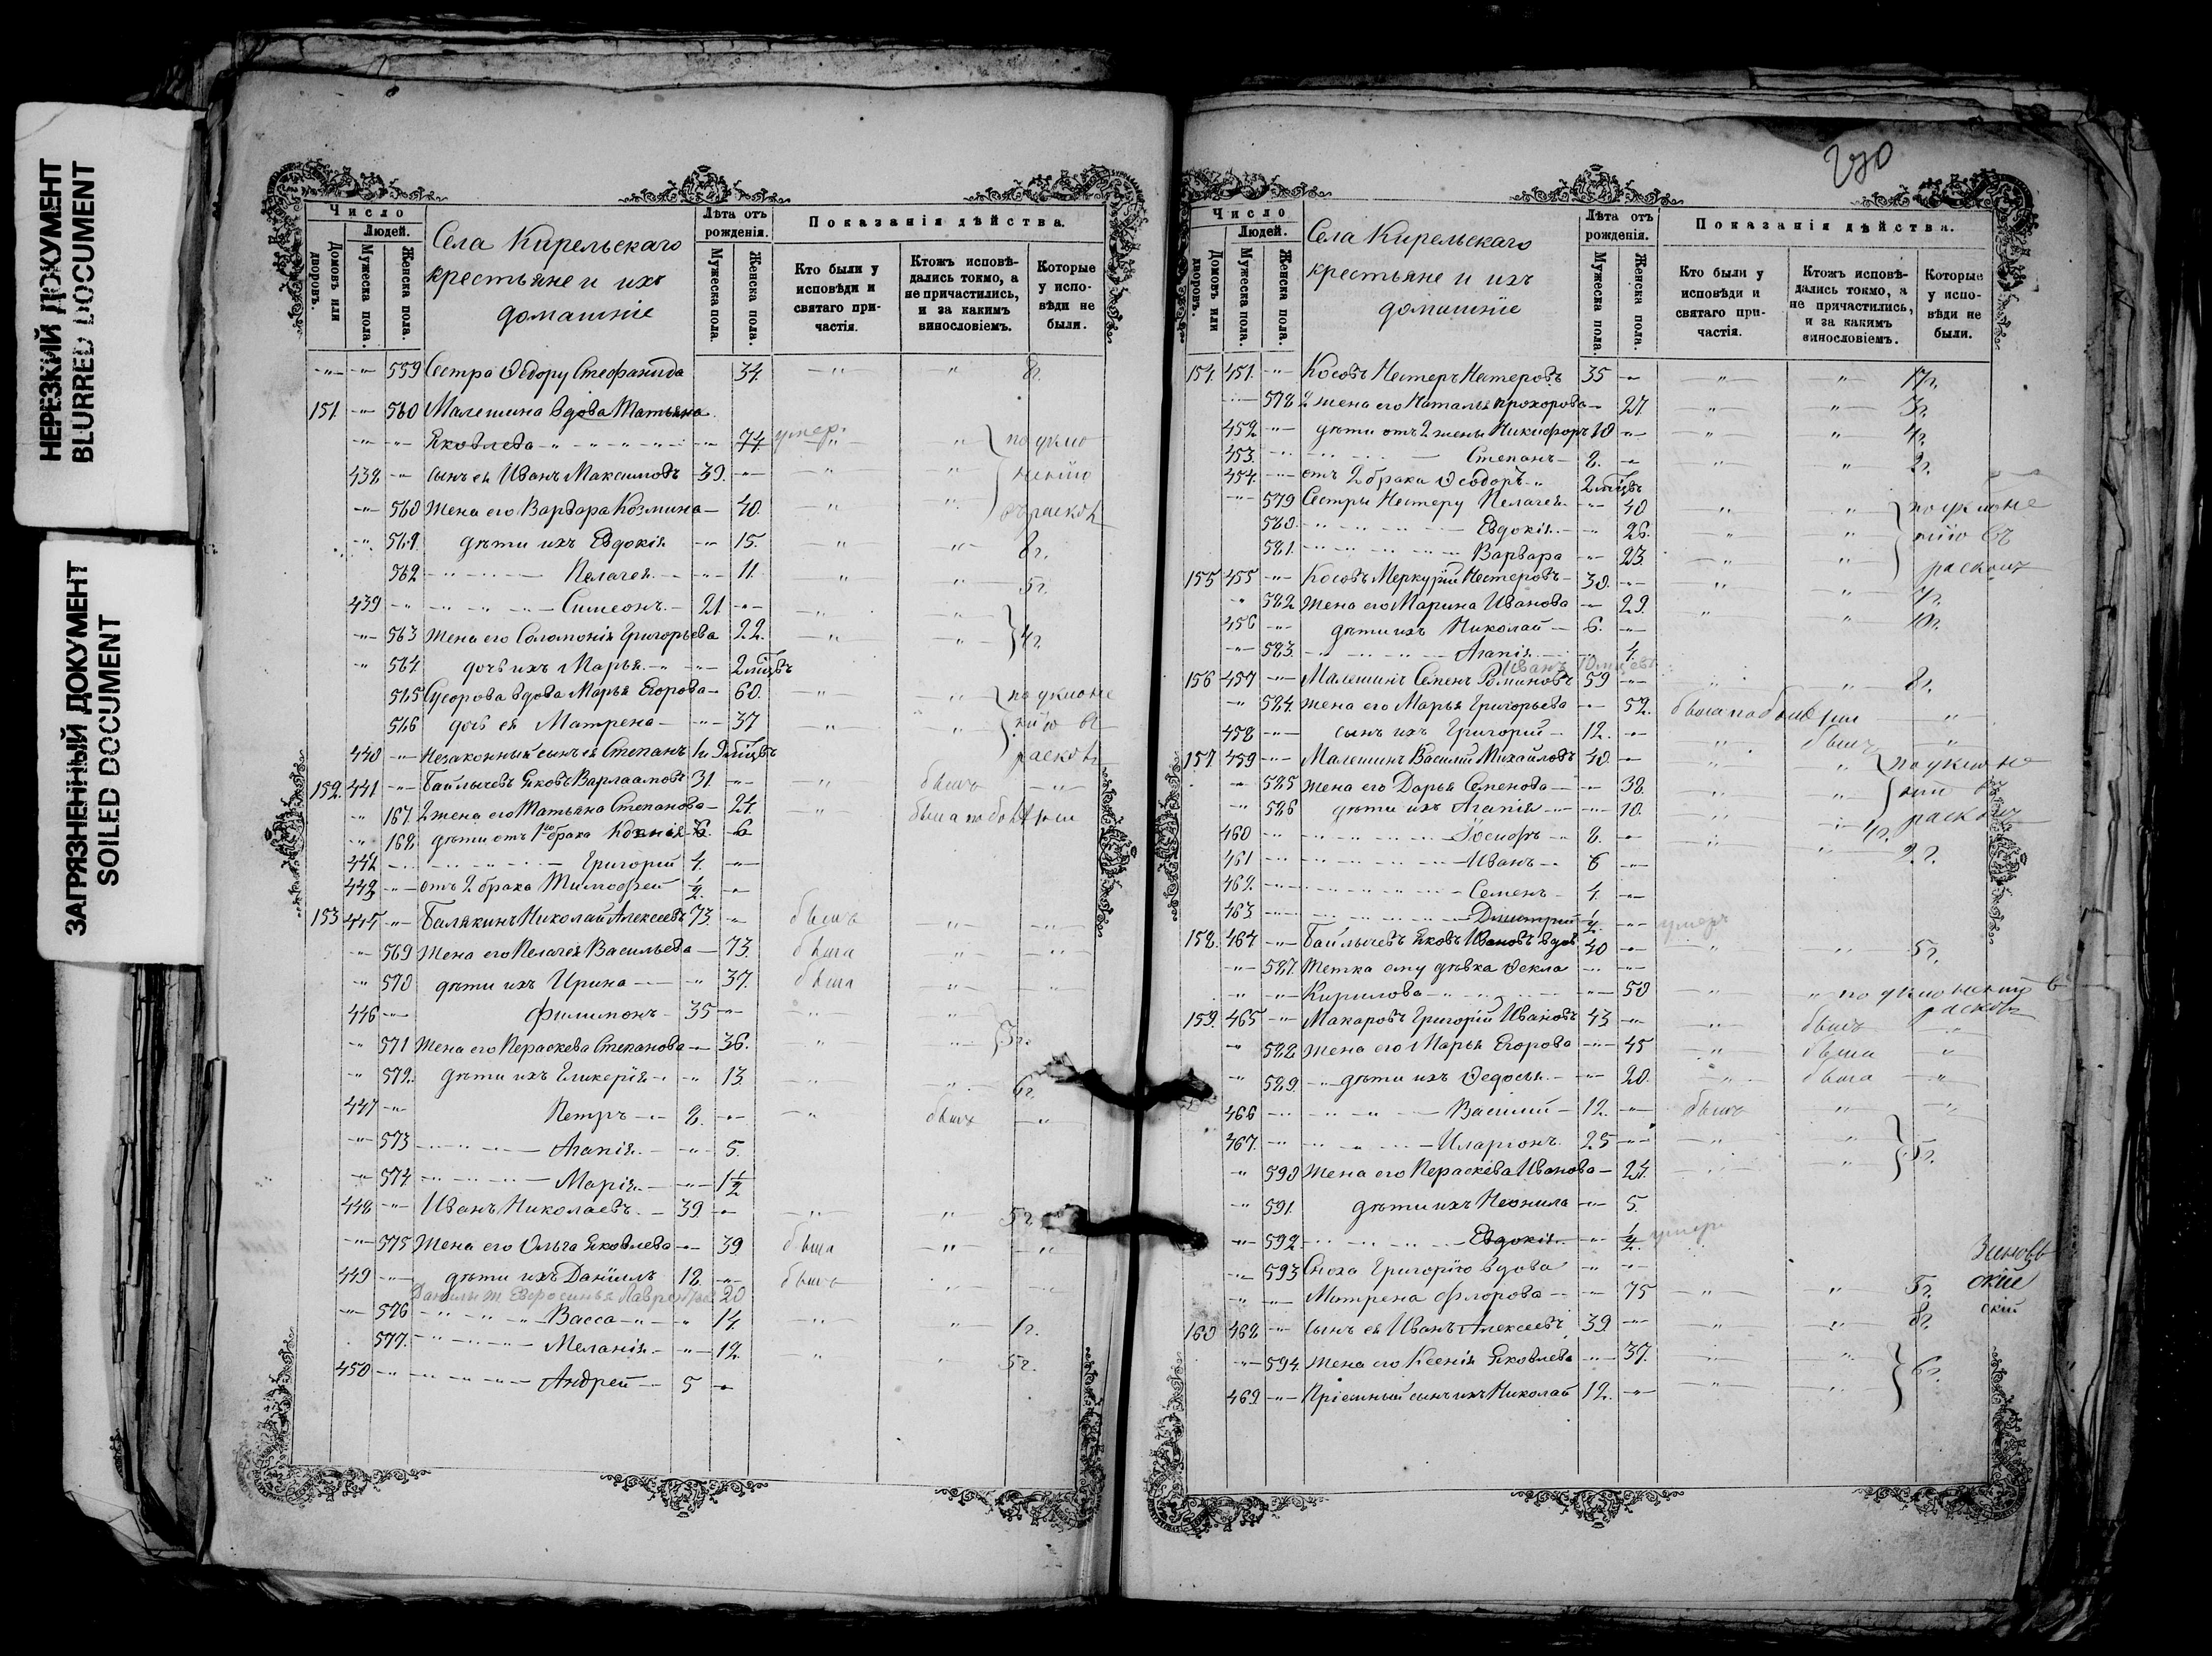 НЕРЕЗКИЙ ДОКУМЕНТ
BLURRED DOCUMENT
ЗАГРЯЗНЕННЫЙ ДОКУМЕНТ
SOILED DOCUMENT
Число
Людей.
Домовъ или дворовъ.
Мужеска пола.
Женска пола.
Села Кирельскаго
крестьяне и ихъ
домашніе
Лѣта отъ рожденія.
Мужеска пола.
Женска пола.
Показанія дѣйства.
Кто были у исповѣди и святаго причастія.
Ктожъ исповѣдались токмо, а не причастились, и за какимъ винословіемъ.
Которые у исповѣди не были.
559 Сестра Ѳедору Стефанида 34. 8 г.
151. 560 Малешина вдова Татьяна
Яковлева 74. умер. по укло
438 сынъ ея Иванъ Максимовъ 39. ненію
560 Жена его Варвара Козмина 40. въ раскол
561 дѣти ихъ Евдокія 15. 8 г.
562 Пелагея 11. 5 г.
439 Симеонъ 21
563 Жена его Соломонія Григорьева 22. 4 г.
564 дочь ихъ Марья 2 мѣсцвъ
565 Суворова вдова Марья Егорова 60. по уклоне
566 дочь ея Матрена 37 нію въ
440 Незаконный сынъ ея Степанъ раскол
152. 441 Байлычевъ Яковъ Варлаамовъ 31. былъ
167. 2 жена его Татьяна Степанова 24. была по болѣзни
168 дѣти отъ 1го брака Ксенія 6. 6
442 Григорій 4.
443 отъ 2 брака Тимофей 1/2
153 445 Балякинъ Николай Алексеевъ 73. былъ
569 Жена его Пелагея Васильева 73. была
570 дѣти ихъ Ирина 37. была
446 Филимонъ 35
571 Жена его Пераскева Степанова 36. 3 г.
572. дѣти ихъ Гликерія 13. 6 г.
447 Петръ 8. былъ
573 Агапія 5.
574 Марія 1 1/2
448 Иванъ Николаевъ 39 5 г.
575 Жена его Ольга Яковлева 39 была
449 дѣти ихъ Даніилъ 18. былъ
Данилы ж Евфросинья Лаврентьева 20
576 Васса 14. 1 г.
577. Меланія 12. 5 г.
450 Андрей 5
270
Число
Людей.
Домовъ или дворовъ.
Мужеска пола.
Женска пола.
Села Кирельскаго
крестьяне и ихъ
домашніе
Лѣта отъ рожденія.
Мужеска пола.
Женска пола.
Показанія дѣйства.
Кто были у исповѣди и святаго причастія.
Ктожъ исповѣдались токмо, а не причастились, и за какимъ винословіемъ.
Которые у исповѣди не были.
154. 451. Косовъ Нестеръ Нестеровъ 35 17 г.
578 2 жена его Наталья Прохорова 27 3 г.
452 дѣти отъ 2 жены Никифоръ 10 4 г.
453. Степанъ 8. 2 г.
454. отъ 2 брака Ѳеодоръ 2 мѣсцвъ
579 Сестры Нестеру Пелагея 40 по уклоне
580 Евдокія 26. нію въ
581. Варвара 23. расколъ
155 455 Косовъ Меркурій Нестеровъ 30. 7 г.
582 жена его Марина Иванова 29. 10 г.
456 дѣти ихъ Николай 6.
583. Агапія 4.
Иванъ 10 мѣсцевъ
156 457 Малешинъ Семенъ Романовъ 59 8 г.
584. жена его Марья Григорьева 52. была по болѣзни
458 сынъ ихъ Григорій 12. былъ
157 459 Малешинъ Василій Михайловъ 40. по уклоне
585 жена его Дарья Семенова 38. ній в
586 дѣти ихъ Агапія 10. расколъ
460 Іосифъ 8. 4 г.
461 Иванъ 6 2 г.
462. Семенъ 4.
463 Дмитрій 1/2 умеръ
158. 464 Байлычевъ Яковъ Ивановъ вдов 40 5 г.
587. Тетка ему дѣвка Ѳекла
Кирилова 50 по уклоненію въ
159. 465 Макаровъ Григорій Ивановъ 43 былъ расколъ
588 жена его Марья Егорова 45 была
589 дѣти ихъ Ѳедосья 20. была
466 Василій 12. былъ
467. Иларіонъ 25 5 г.
590 жена его Пераскева Иванова 24.
591. дѣти ихъ Неонила 5.
592 Евдокія 1/2 умер.
593 Сноха Григорію вдова
Матрена Флорова 75 5 г.
160 468 сынъ ея Иванъ Алексеевъ 39 8 г.
594. жена его Ксенія Яковлева 37. 6 г.
469 Пріемный сынъ ихъ Николай 12.